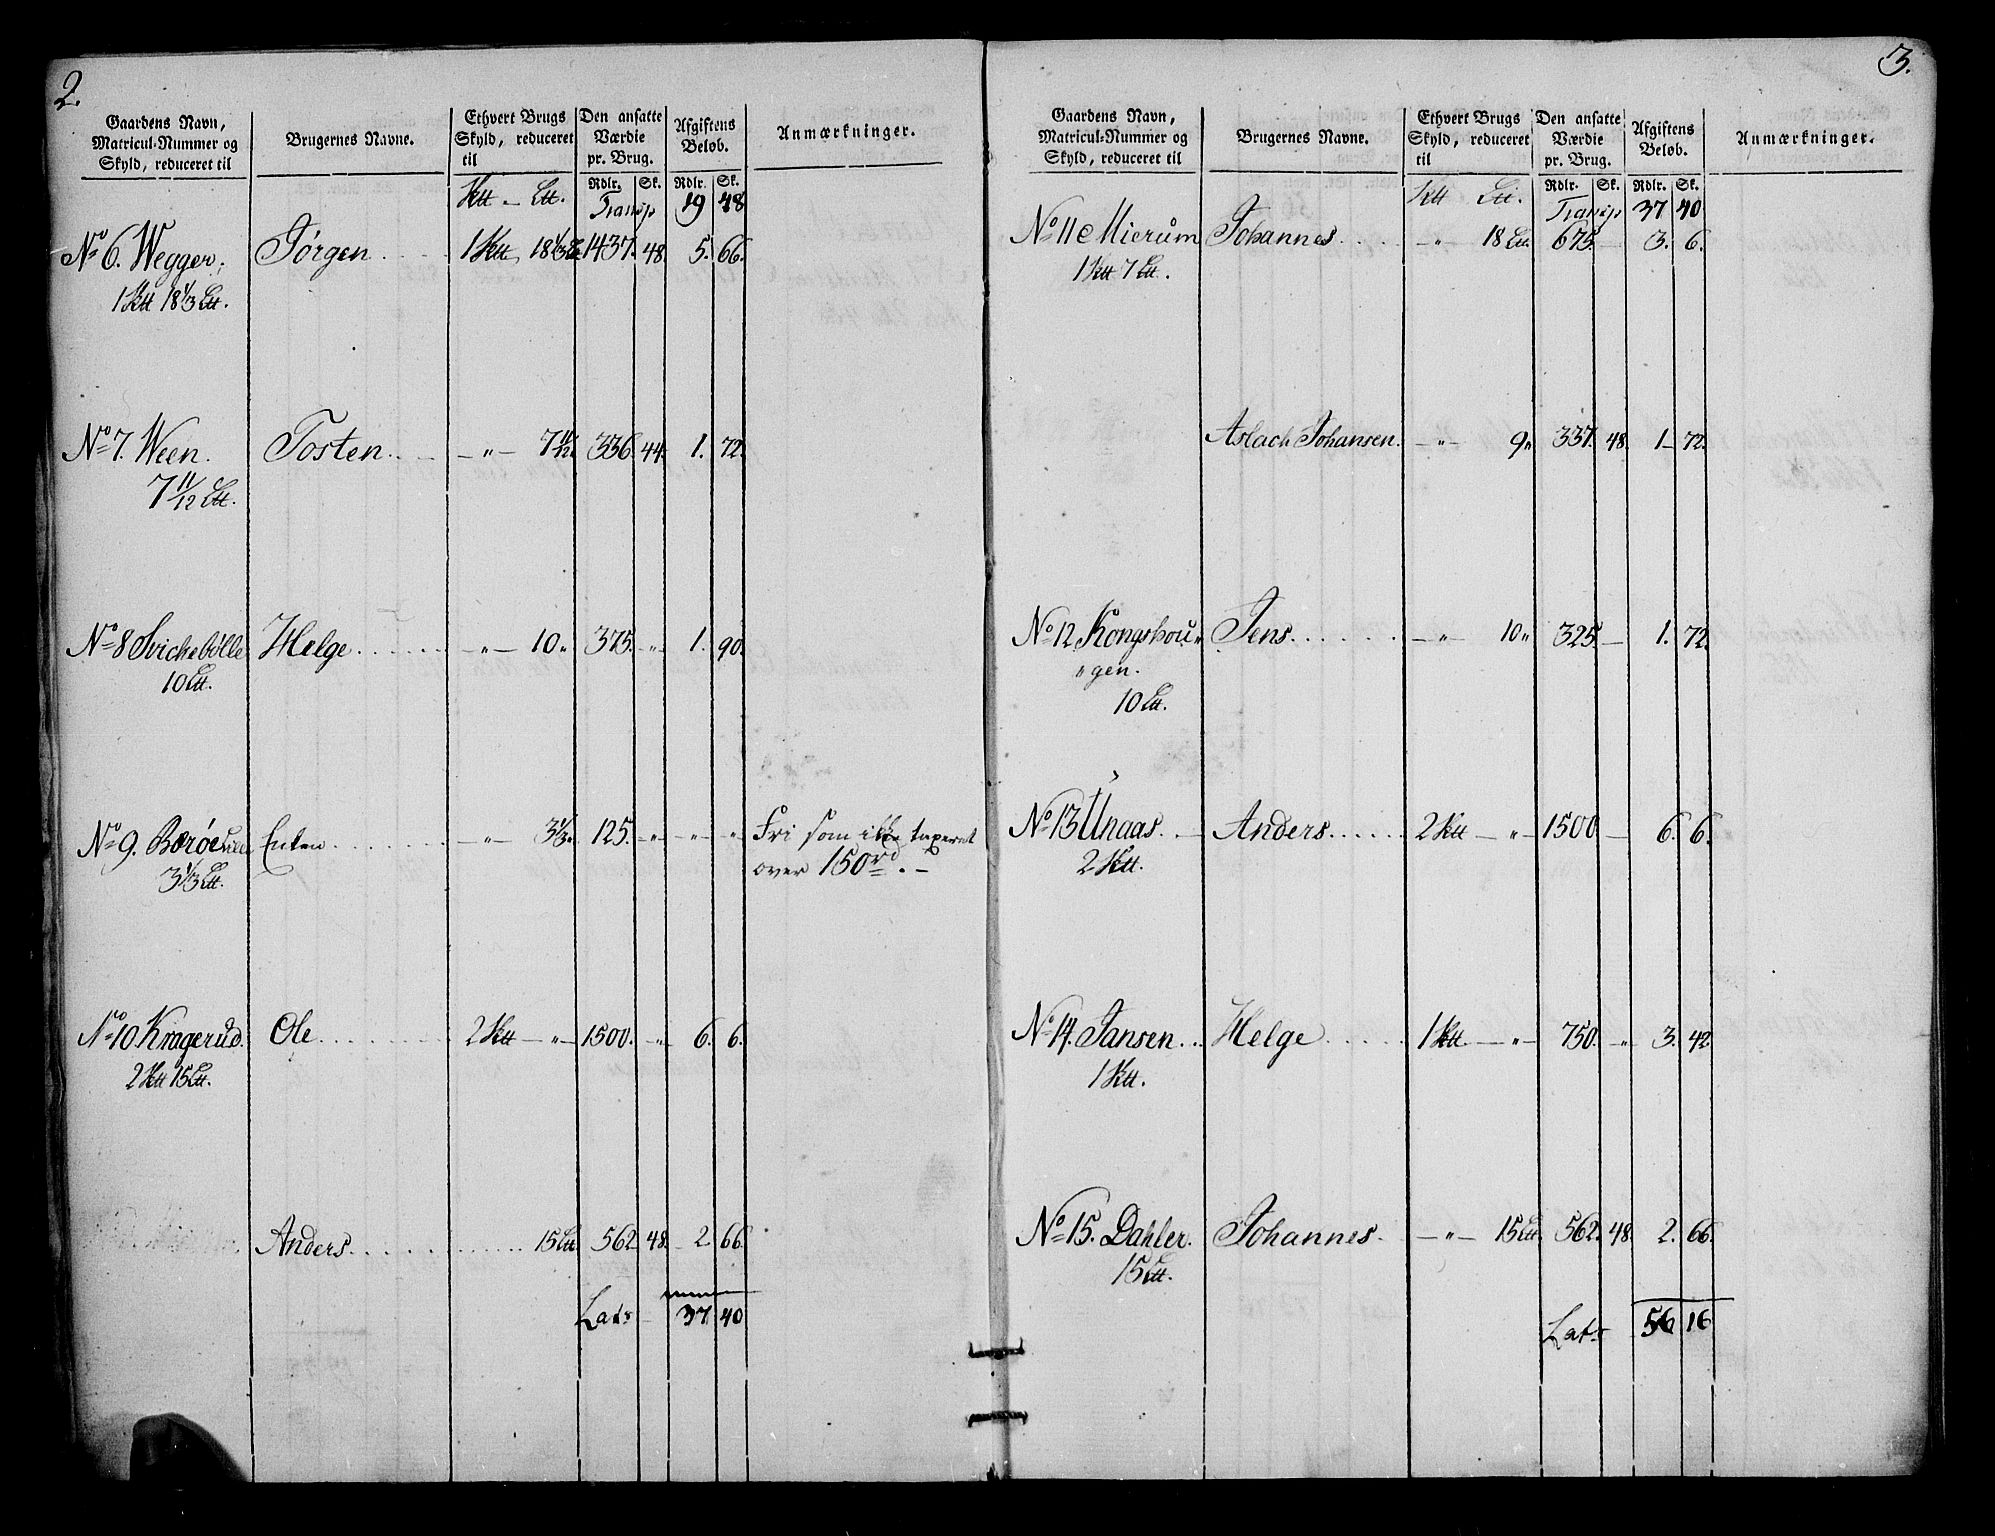 2.
Gaardens Navn, Matricul-Nummer og Skyld, reduceret til | Brugernes Navne. | Ethvert Brugs Skyld, reduceret til | Den ansatte Værdie pr. Brug. | Afgiftens Beløb. | Anmærkninger.
Ktt — Ltt. | Rdlr. Sk. | Rdlr. Sk.
Transp 19 48
No 6. Wegger, Jørgen 1 Ktt 18 1/3 Ltt 1437. 48. 5. 66.
1 Ktt 18 1/3 Ltt.
No 7. Ween. Tosten — „ — 7 11/12. 336. 44. 1. 72.
7 11/12 Ltt.
No 8 Svichebölle Helge — „ — 10 „ 375. „ 1. 90.
10 Ltt.
No 9. Enten — „ — 3 1/3 „ 125. „ „ „ Fri som ikke taxeret
3 1/3 Ltt. over 150 rd. —
No 10. Kragerud. Ole 2 Ktt — „ — 1500. „ 6. 6.
2 Ktt 15 Ltt.
Anders 15 Ltt 562. 48. 2. 66.
Lats — 37 40
3.
Gaardens Navn, Matricul-Nummer og Skyld, reduceret til | Brugernes Navne. | Ethvert Brugs Skyld, reduceret til | Den ansatte Værdie pr. Brug. | Afgiftens Beløb. | Anmærkninger.
Ktt Ltt. | Rdlr. Sk. | Rdlr. Sk.
Transp 37 40
No 11 Mierum Johannes — „ — 18 Ltt. 675. — 3. 6.
1 Ktt 7 Ltt.
Aslach Johansen. — „ — 9 „ 337. 48. 1 — 72.
No 12 Kongshou „ Jens — „ — 10 „ 325. — 1. 72.
„ gen.
10 Ltt.
No 13 Unaas. Anders 2 Ktt — „ — 1500 — 6. 6.
2 Ktt.
No 14. Jansen Helge 1 Ktt — „ — 750. „ 3. 42.
1 Ktt.
No 15. Dahler. Johannes — „ — 15 Ltt. 562. 48. 2. 66.
15 Ltt.
Lats 56 16